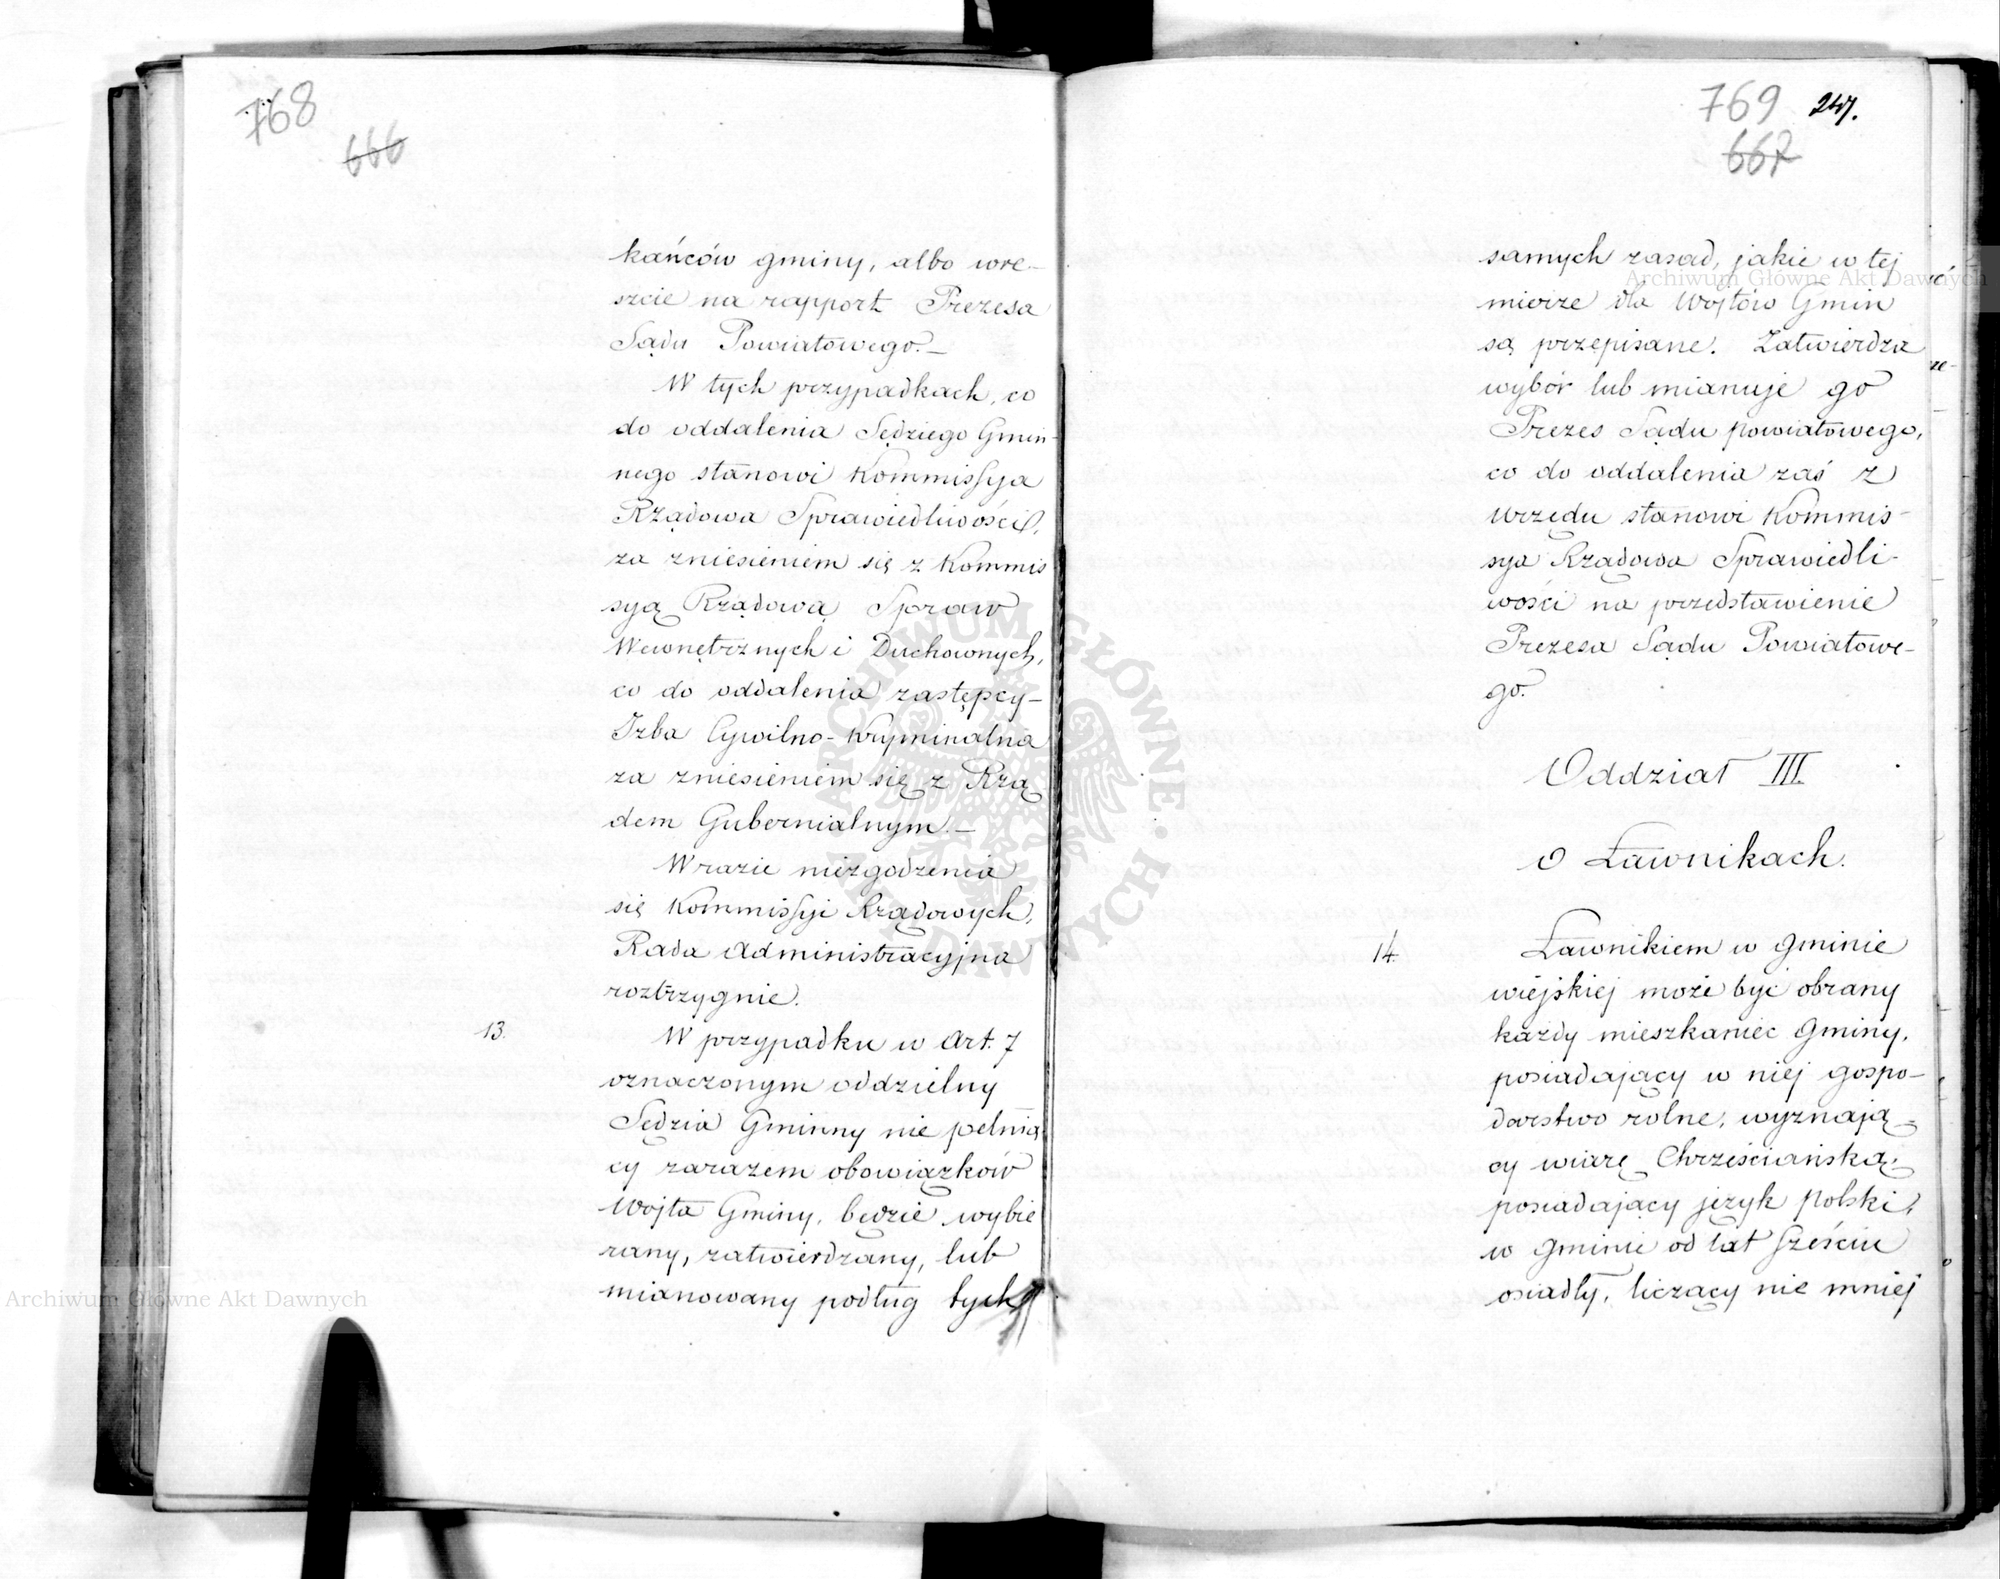 768
666
kańców gminy, albo wre-
szcie na rapport Prezesa
Sądu Powiatowego.-
W tych przypadkach, co
do oddalenia Sędziego Gmin-
nego stanowi Kommissya
Rządowa Sprawiedliwości,
za zniesieniem się z Kommis
syą Rządową Spraw
Wewnętrznych i Duchownych,
co do oddalenia zastępcy-
Izba Cywilno-Kryminalna
za zniesieniem się z Rzą
dem Gubernialnym.-
W razie niezgodzenia
się Kommissyi Rządowych,
Rada Administracyjna
roztrzygnie.
13.
W przypadku w Art. 7
oznaczonym oddzielny
Sędzia Gminny nie pełnią
cy zarazem obowiązków
Wojta Gminy, będzie wybie
rany, zatwierdzany, lub
mianowany podług tych
769 247.
667
samych zasad, jakie w tej
mierze dla Wojtów Gmin
są przepisane. Zatwierdza
wybór lub mianuje go
Prezes Sądu powiatowego,
co do oddalenia zaś z
Urzędu stanowi Kommis-
sya Rządowa Sprawiedli-
wości na przedstawienie
Prezesa Sądu Powiatowe-
go.
Oddział III.
O Ławnikach.
14.
Ławnikiem w Gminie
wiejskiej może być obrany
każdy mieszkaniec Gminy,
posiadający w niej gospo-
darstwo rolne, wyznają-
cy wiarę Chrześciańską,
posiadający język polski,
w Gminie od lat sześciu
osiadły, liczący nie mniej
Archiwum Główne Akt Dawnych
Archiwum Główne Akt Dawnych
ARCHIWUM GŁÓWNE AKT DAWNYCH